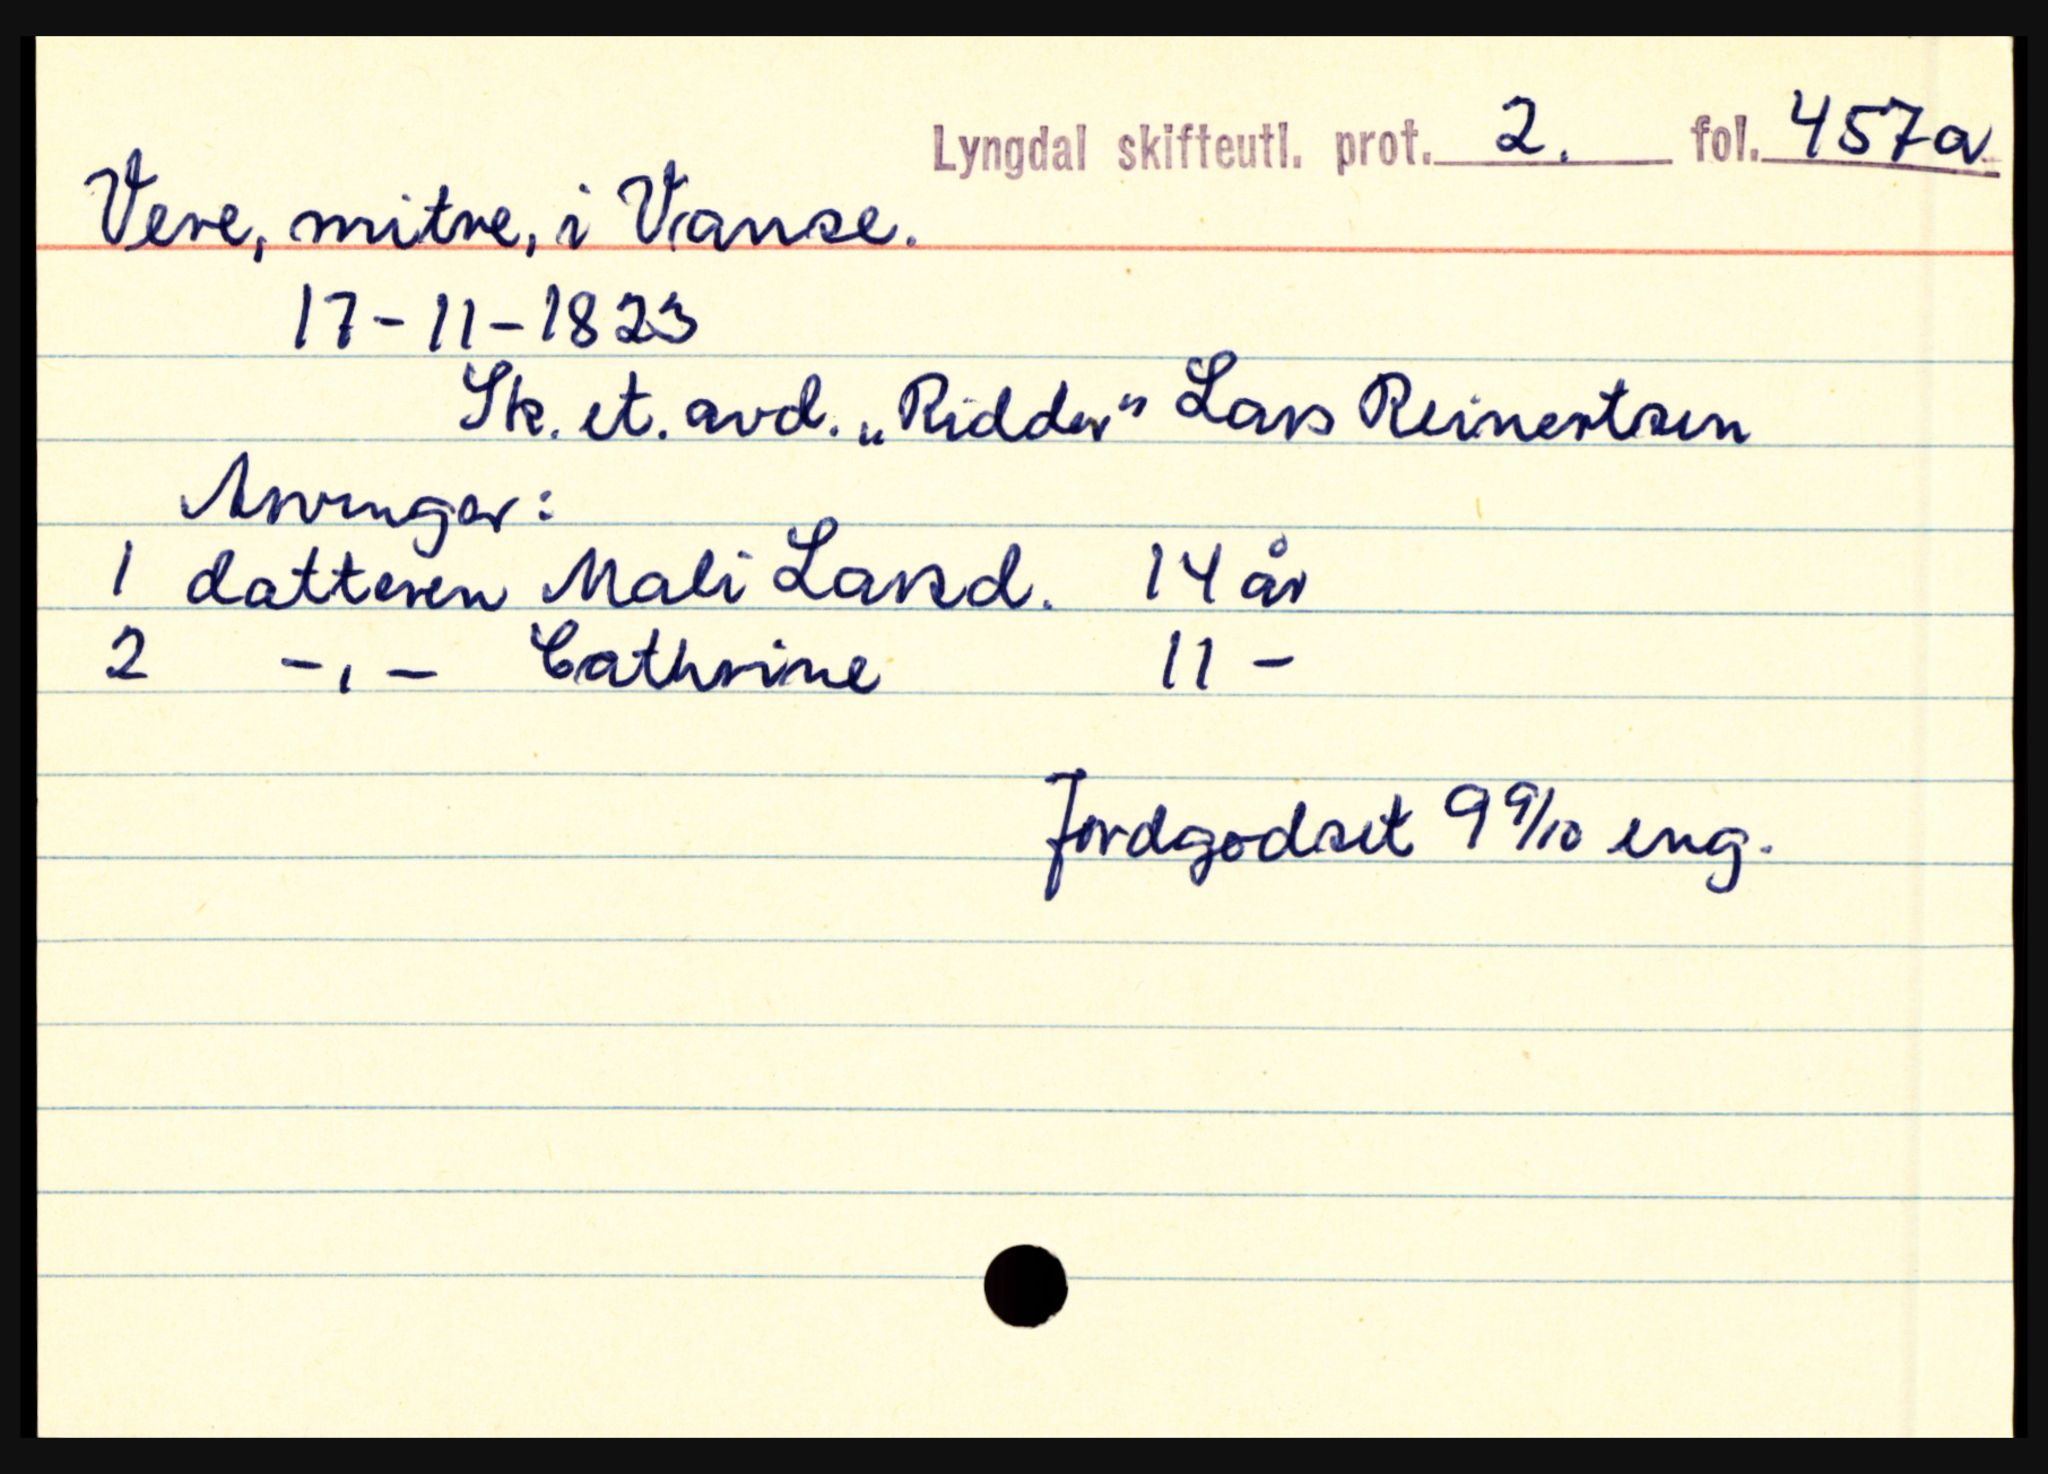 Lyngdal skifteutl. prot. 2. fol. 457a
Vere, mitre, i Vanse.
17-11-1823
Sk. et. avd. „Ridder" Lars Reinertsen
Arvinger:
1 datteren Mali Larsd. 14 år
2 -,- Cathrine 11 -
Jordgodset 9 9/10 eng.